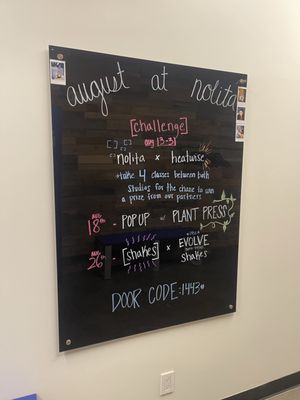 august at nolita
[challenge]
aug 13-31
nolita x heatwise
*take 4 classes between both
studios for the chance to win
a prize from our partners
AUG 18th - POPUP w/ PLANT PRESS
AUG 26th - [shakes] x EVOLVE
shakes
DOOR CODE: 1443*